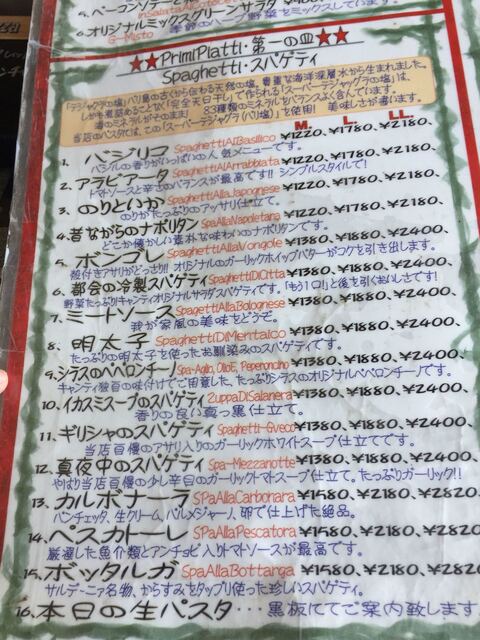 5.ベーコンソテー
InsalataAllaPancetta
6.オリジナルミックスグリーンサラダ ¥
G-Misto 季節のハーブ野菜をミックスしています。
★★PrimiPiatti・第一の皿★★
Spaghetti・スパゲティ
「テジャクラの塩」バリ島の古くから伝わる天然の塩、貴重な海洋深層水から生まれました。
しかも煮詰めることなく「完全天日干し」で作られる「スーパーデジャグラの塩」は、
海のミネラルがそのまま! 83種類のミネラルをバランスよく含んでいます。
当店のパスタでは、この「スーパーテジャグラ(バリ塩)」を使用! 美味しさが違います。
M. L. LL.
1. バジリコ SpaghettiAlBasilico ¥1220、¥1780、¥2180、
バジルの香りがいっぱいの人気メニューです。
2. アラビアータ SpaghettiAlArrabbiata ¥1220、¥1780、¥2180、
トマトソースと辛さのバランスが最高です!! シンプルスタイルで!
3. のりといか SpaghettiAllaJapognese ¥1220、¥1780、¥2180、
のりがたっぷりのアッサリ仕立て。
4.昔ながらのナポリタン SpaAllaNapoletana ¥1220、¥1780、¥2180、
どこか懐かしい素朴な味わいのナポリタンです。
5. ボンゴレ SpaghettiAllaVongole ¥1380、¥1880、¥2400、
殻付きアサリがどっさり!! オリジナルのガーリックホイップバターがコクを引き出します。
6. 都会の冷製スパゲティ SpaghettiDiCitta ¥1380、¥1880、¥2400、
野菜たっぷりキャンティオリジナルサラダスパゲティです。「もう1口!」と後を引くおいしさです!
7. ミートソース SpaghettiAllaBolognese ¥1380、¥1880、¥2400、
我が家風の美味をどうぞ。
8. 明太子 SpaghettiDiMentaico ¥1380、¥1880、¥2400、
たっぷりの明太子を使ったお馴染みのスパゲティです。
9.シラスのペペロンチーノ Spa-Aglio, OlioE, Peperoncho ¥1380、¥1880、¥2400、
キャンティ独自の味付けでご用意した、たっぷりシラスのオリジナルペペロンチーノです。
10.イカスミスープのスパゲティ ZuppaDiSalanera ¥1380、¥1880、¥2400、
香りの良い真っ黒仕立て。
11. ギリシャのスパゲティ Spaghetti-Gveco ¥1380、¥1880、¥2400、
当店自慢のアサリ入りのガーリックホワイトスープ仕立てです。
12. 真夜中のスパゲティ Spa-Mezzanotte ¥1380、¥1880、¥2400、
やはり当店自慢の少し辛目のガーリックトマトスープ仕立て。たっぷりガーリック!!
13. カルボナーラ SPaAllaCarbonara ¥1580、¥2180、¥2820、
パンチェッタ、生クリーム、パルメジャーノ、卵で仕上げた絶品。
14. ペスカトーレ SPaAllaPescatora ¥1580、¥2180、¥2820
厳選した魚介類とアンチョビ入りトマトソースが最高です。
15. ボッタルガ SpaAllaBottarga ¥1580、¥2180、¥2820
サルデーニァ名物、からすみをタップリ使った珍しいスパゲティ。
16.本日の生パスタ・・・黒板にてご案内致します